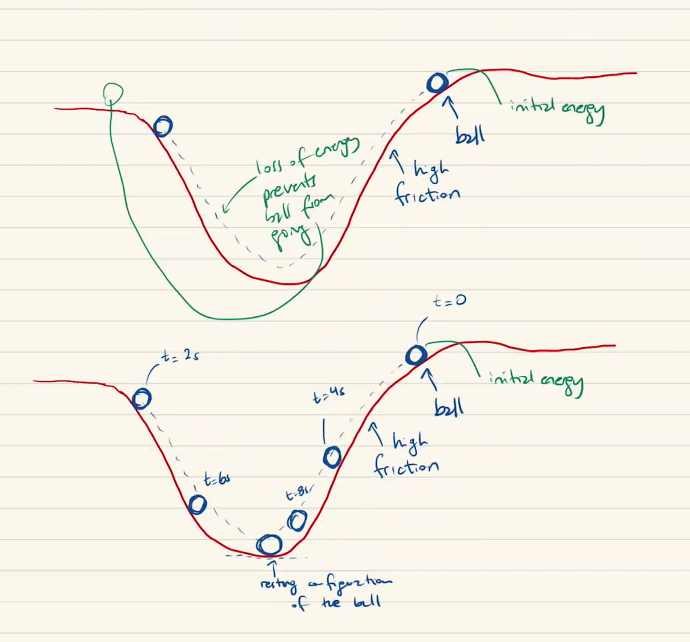 initial energy
ball
high
friction
loss of energy
prevents
ball from
going
t=0
t=2s
t=4s
initial energy
ball
high
friction
t=6s
t=8s
resting configuration
of the ball